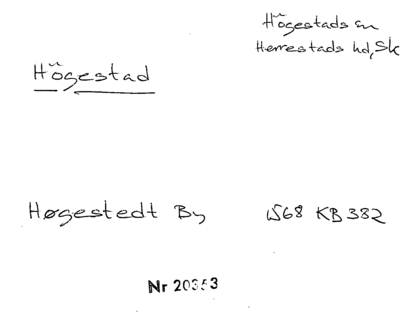 Högestads sn
Herrestads hd, Sk
Högestad
Høgestedt By 1568 KB 382
Nr 20353